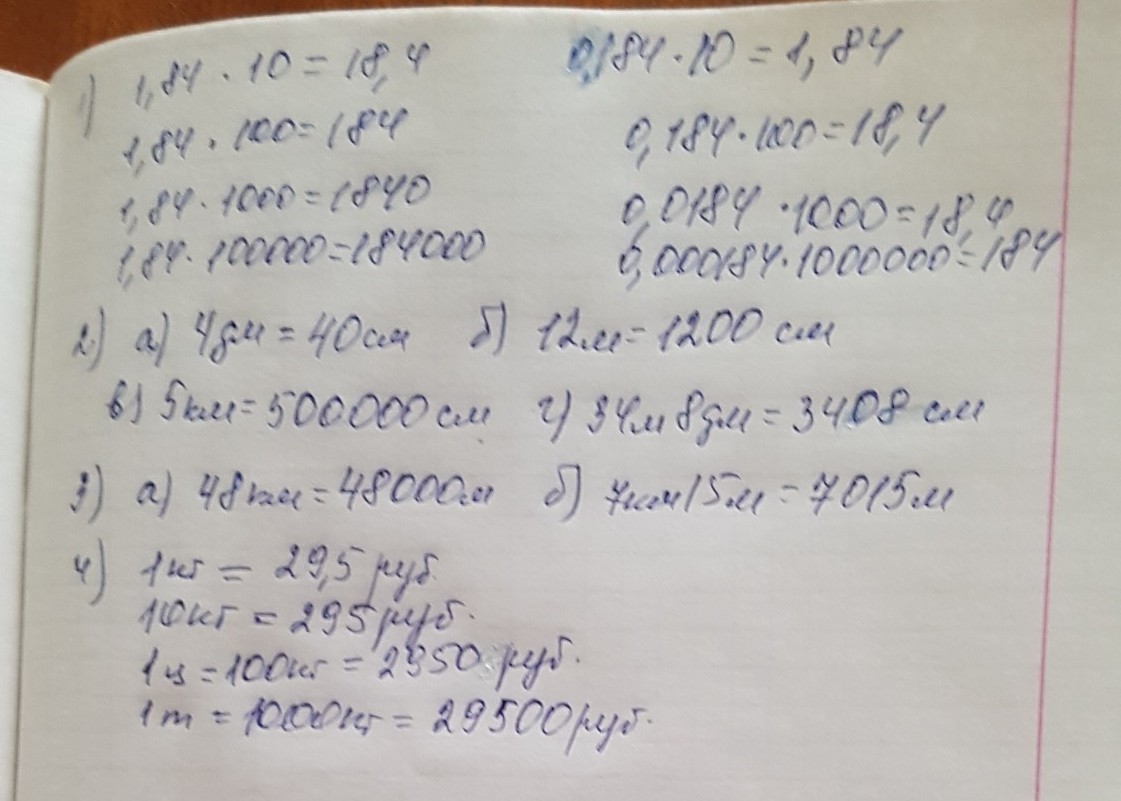 1) 1,84 · 10 = 18,4 0,184 · 10 = 1,84
1,84 · 100 = 184 0,184 · 100 = 18,4
1,84 · 1000 = 1840 0,0184 · 1000 = 18,4
1,84 · 100000 = 184000 0,000184 · 1000000 = 184
2) а) 4дм = 40см б) 12м = 1200 см
в) 5км = 500000 см г) 34м 8дм = 3408 см
3) а) 48км = 48000м б) 7км 15м = 7015м
4) 1кг = 29,5 руб.
10кг = 295 руб.
1ц = 100кг = 2950 руб.
1т = 1000кг = 29500 руб.